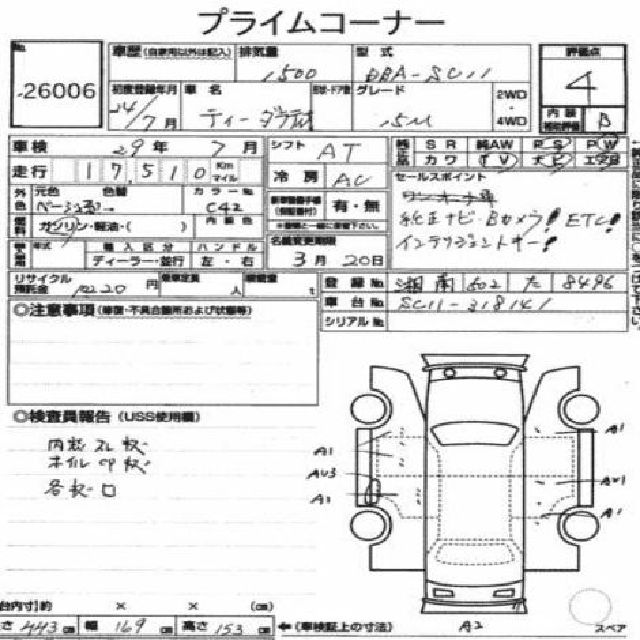 プライムコーナー
No.
26006
車歴 (自家用以外は記入)
排気量
1500
型式
DBA-SC11
評価点
4
内装
B
初度登録年月
24/7月
車名
ティーダラティオ
グレード
15M
2WD
・
4WD
車検 29年 7月
シフト AT
SR 純AW PS PW
カワ TV ナビ エアB
走行 17,510 Km マイル
冷房 AC
セールスポイント
ワンオーナー車
純正ナビ・Bカメラ! ETC!
インテリジェントキー!
外色
元色 色替
カラーNo.
C42
内装色
有・無
燃料
ガソリン・軽油・( )
名義変更期限
3月 20日
年式
輸入区分 ハンドル
ディーラー・並行 左・右
リサイクル預託金 円
乗車定員 人
積載量 t
登録No. 湘南 502 た 8496
車台No. SC11-318141
シリアルNo.
◎注意事項 (修復・不具合箇所および状態等)
◎検査員報告 (USS使用欄)
内装スレ
A1
A1
AU3
A1
AU1
A1
(台内寸)約 × × (cm)
さ 443 cm 幅 169 cm 高さ 153 cm ←(車検証上の寸法)
A2
スペア